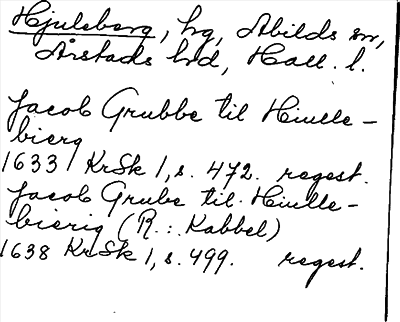 Hjuleberg, hg, Abilds sn,
Årstads hd, Hall. l.
Jacob Grubbe til Hiulle-
bierg
1633 KrSk 1, s. 472. regest.
Jacob Grube til Hiulle-
bierig (R.: Kabbel)
1638 KrSk 1, s. 499. regest.